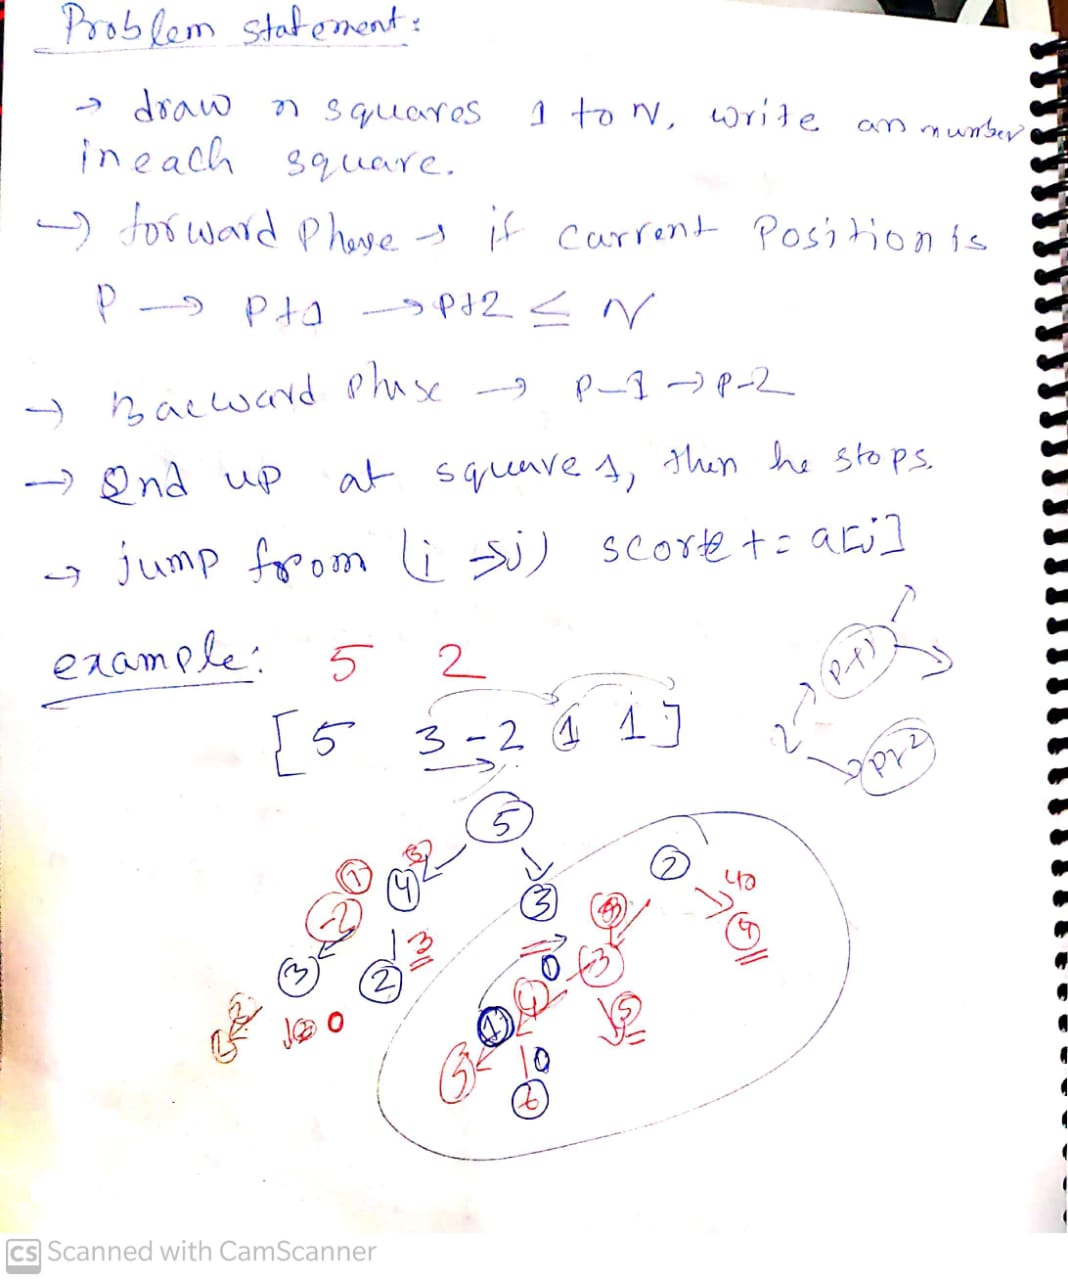 Problem statement:
→ draw n squares 1 to N, write an number
in each square.
→ forward Phase → if current Position is
P → P+1 → P+2 ≤ N
→ Bacward Phase → P-1 → P-2
→ End up at square 1, then he stops.
→ jump from (i → j) score += a[j]
example: 5 2
[5 3 -2 1 1]
P+1
2
P+2
5
4 3
2
-2
3 2 3
0
3
4
1
0
5
6